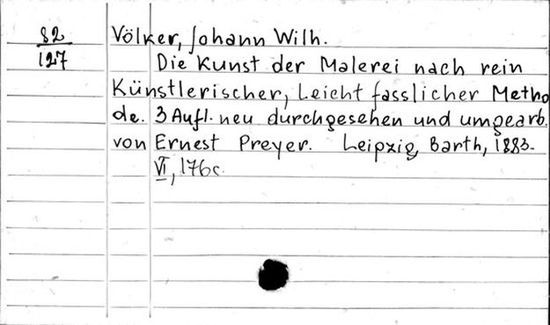 82
127
Völker, Johann Wilh.
Die Kunst der Malerei nach rein
Künstlerischer, Leicht fasslicher Metho
de. 3 Aufl. neu durchgesehen und umgearb.
von Ernest Preyer. Leipzig, Barth, 1883.
VI, 176c.